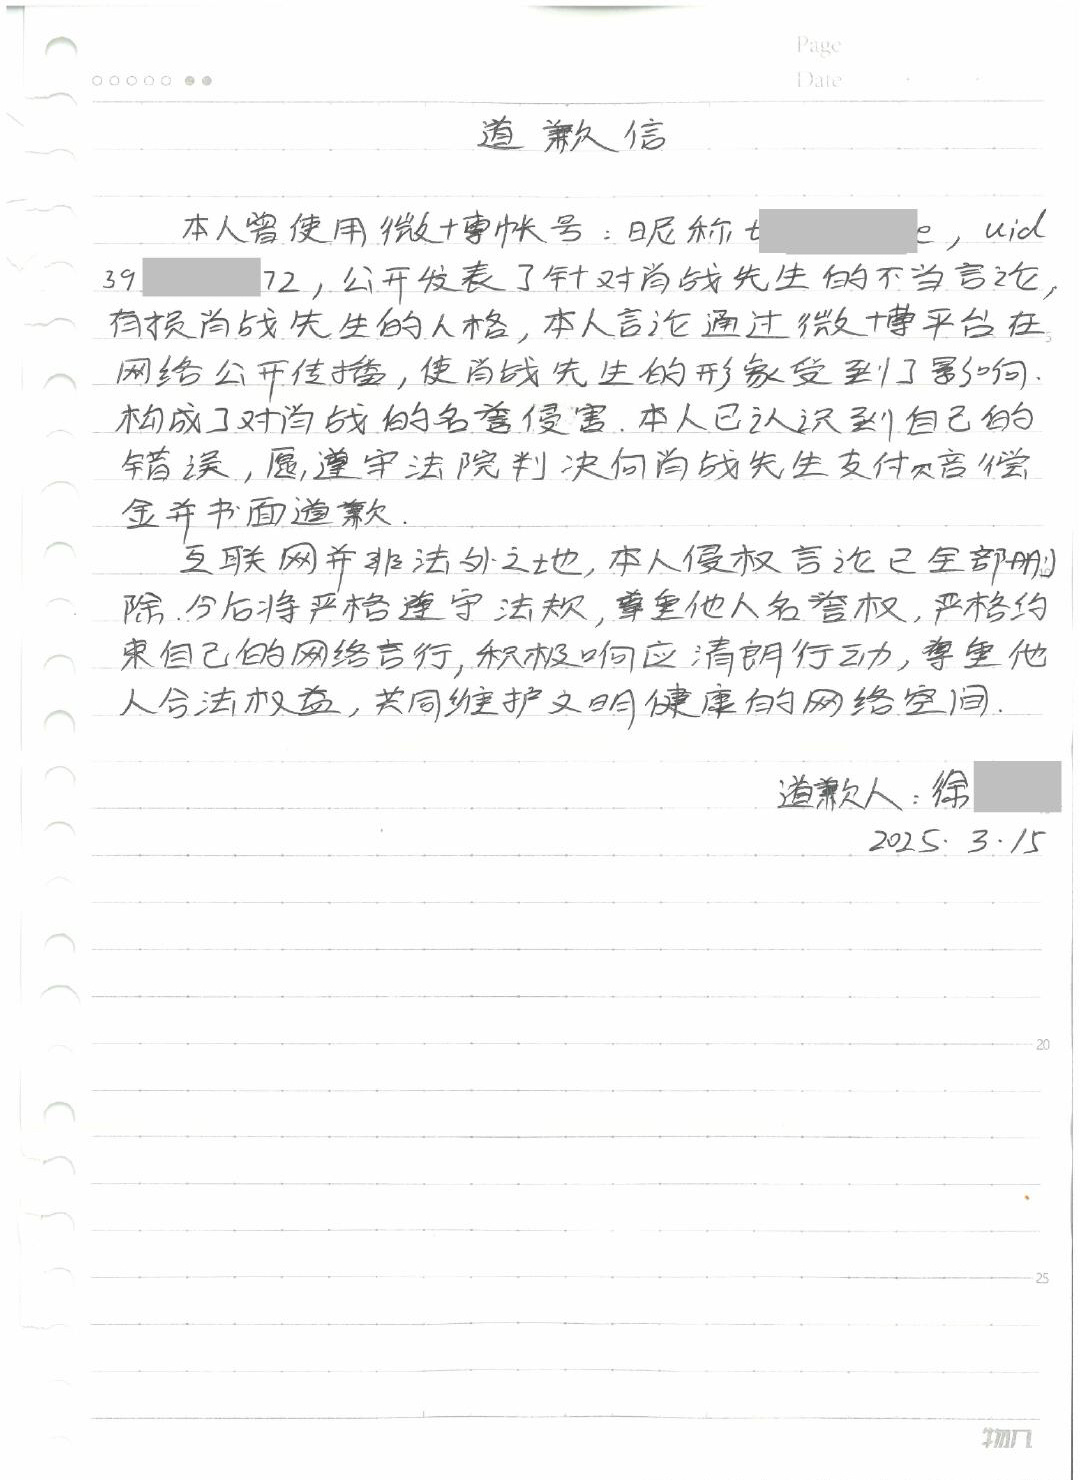 Page
Date
道歉信
本人曾使用微博帐号：昵称t e，uid
39 72，公开发表了针对肖战先生的不当言论，
有损肖战先生的人格，本人言论通过微博平台在
网络公开传播，使肖战先生的形象受到了影响.
构成了对肖战的名誉侵害.本人已认识到自己的
错误，愿遵守法院判决向肖战先生支付赔偿
金并书面道歉.
互联网并非法外之地，本人侵权言论已全部删
除.今后将严格遵守法规，尊重他人名誉权，严格约
束自己的网络言行，积极响应清朗行动，尊重他
人合法权益，共同维护文明健康的网络空间.
道歉人：徐
2025.3.15
5
10
20
25